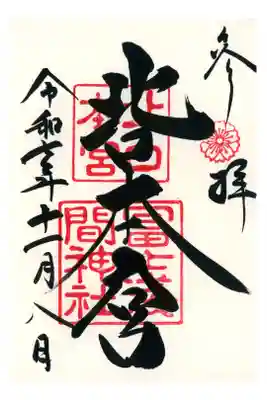 参拝
北口本宮
北口
本宮
冨士浅
間神社
令和年十一月八日